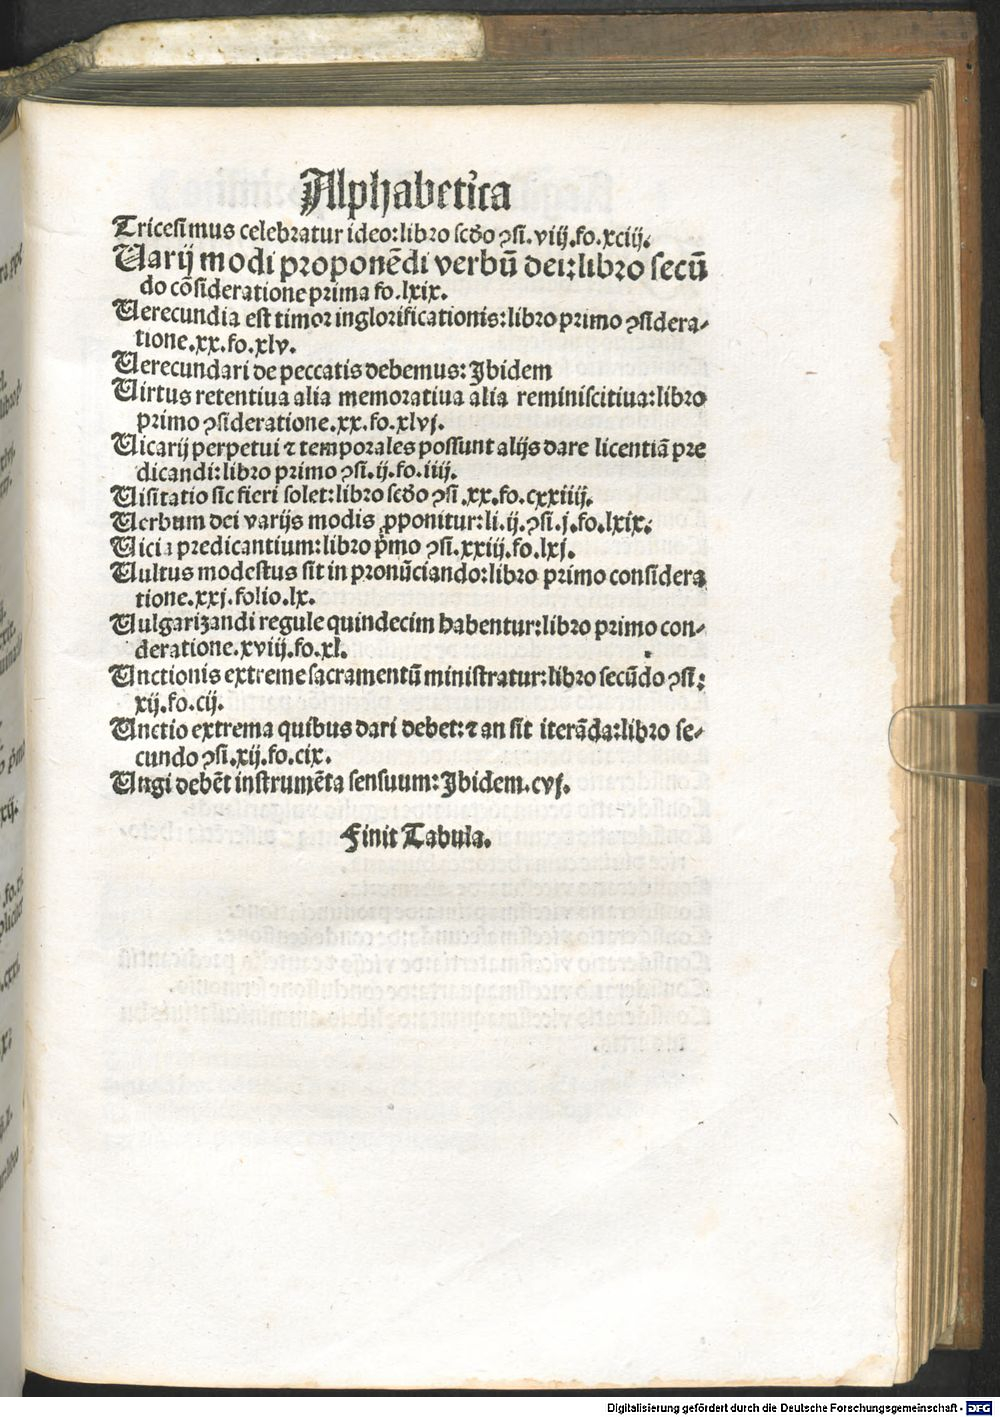 Alphabetica
Tricesimus celebratur ideo:libro scđo ꝯsi.viij.fo.xciij.
Uarij modi proponẽdi verbũ dei:libro secũ
do cõsideratione prima fo.lxix.
Uerecundia est timor inglorificationis:libro primo ꝯsidera-
tione.xx.fo.xlv.
Uerecundari de peccatis debemus:Ibidem
Uirtus retentiua alia memoratiua alia reminiscitiua:libro
primo ꝯsideratione.xx.fo.xlvj.
Uicarij perpetui ⁊ temporales possunt alijs dare licentiã pre
dicandi:libro primo ꝯsi.ij.fo.iiij.
Uisitatio sic fieri solet:libro scđo ꝯsi.xx.fo.cxxiiij.
Uerbum dei varijs modis ꝓponitur:li.ij.ꝯsi.j.fo.lxix.
Uicia predicantium:libro p̃mo ꝯsi.xxiij.fo.lxj.
Uultus modestus sit in pronũciando:libro primo considera
tione.xxj.folio.lx.
Uulgarizandi regule quindecim habentur:libro primo con-
deratione.xviij.fo.xl.
Unctionis extreme sacramentũ ministratur:libro secũdo ꝯsi:
xij.fo.cij.
Unctio extrema quibus dari debet:⁊ an sit iterãda:libro se-
cundo ꝯsi.xij.fo.cix.
Ungi debẽt instrumẽta sensuum:Ibidem.cvj.
Finit Tabula.
Digitalisierung gefördert durch die Deutsche Forschungsgemeinschaft - DFG